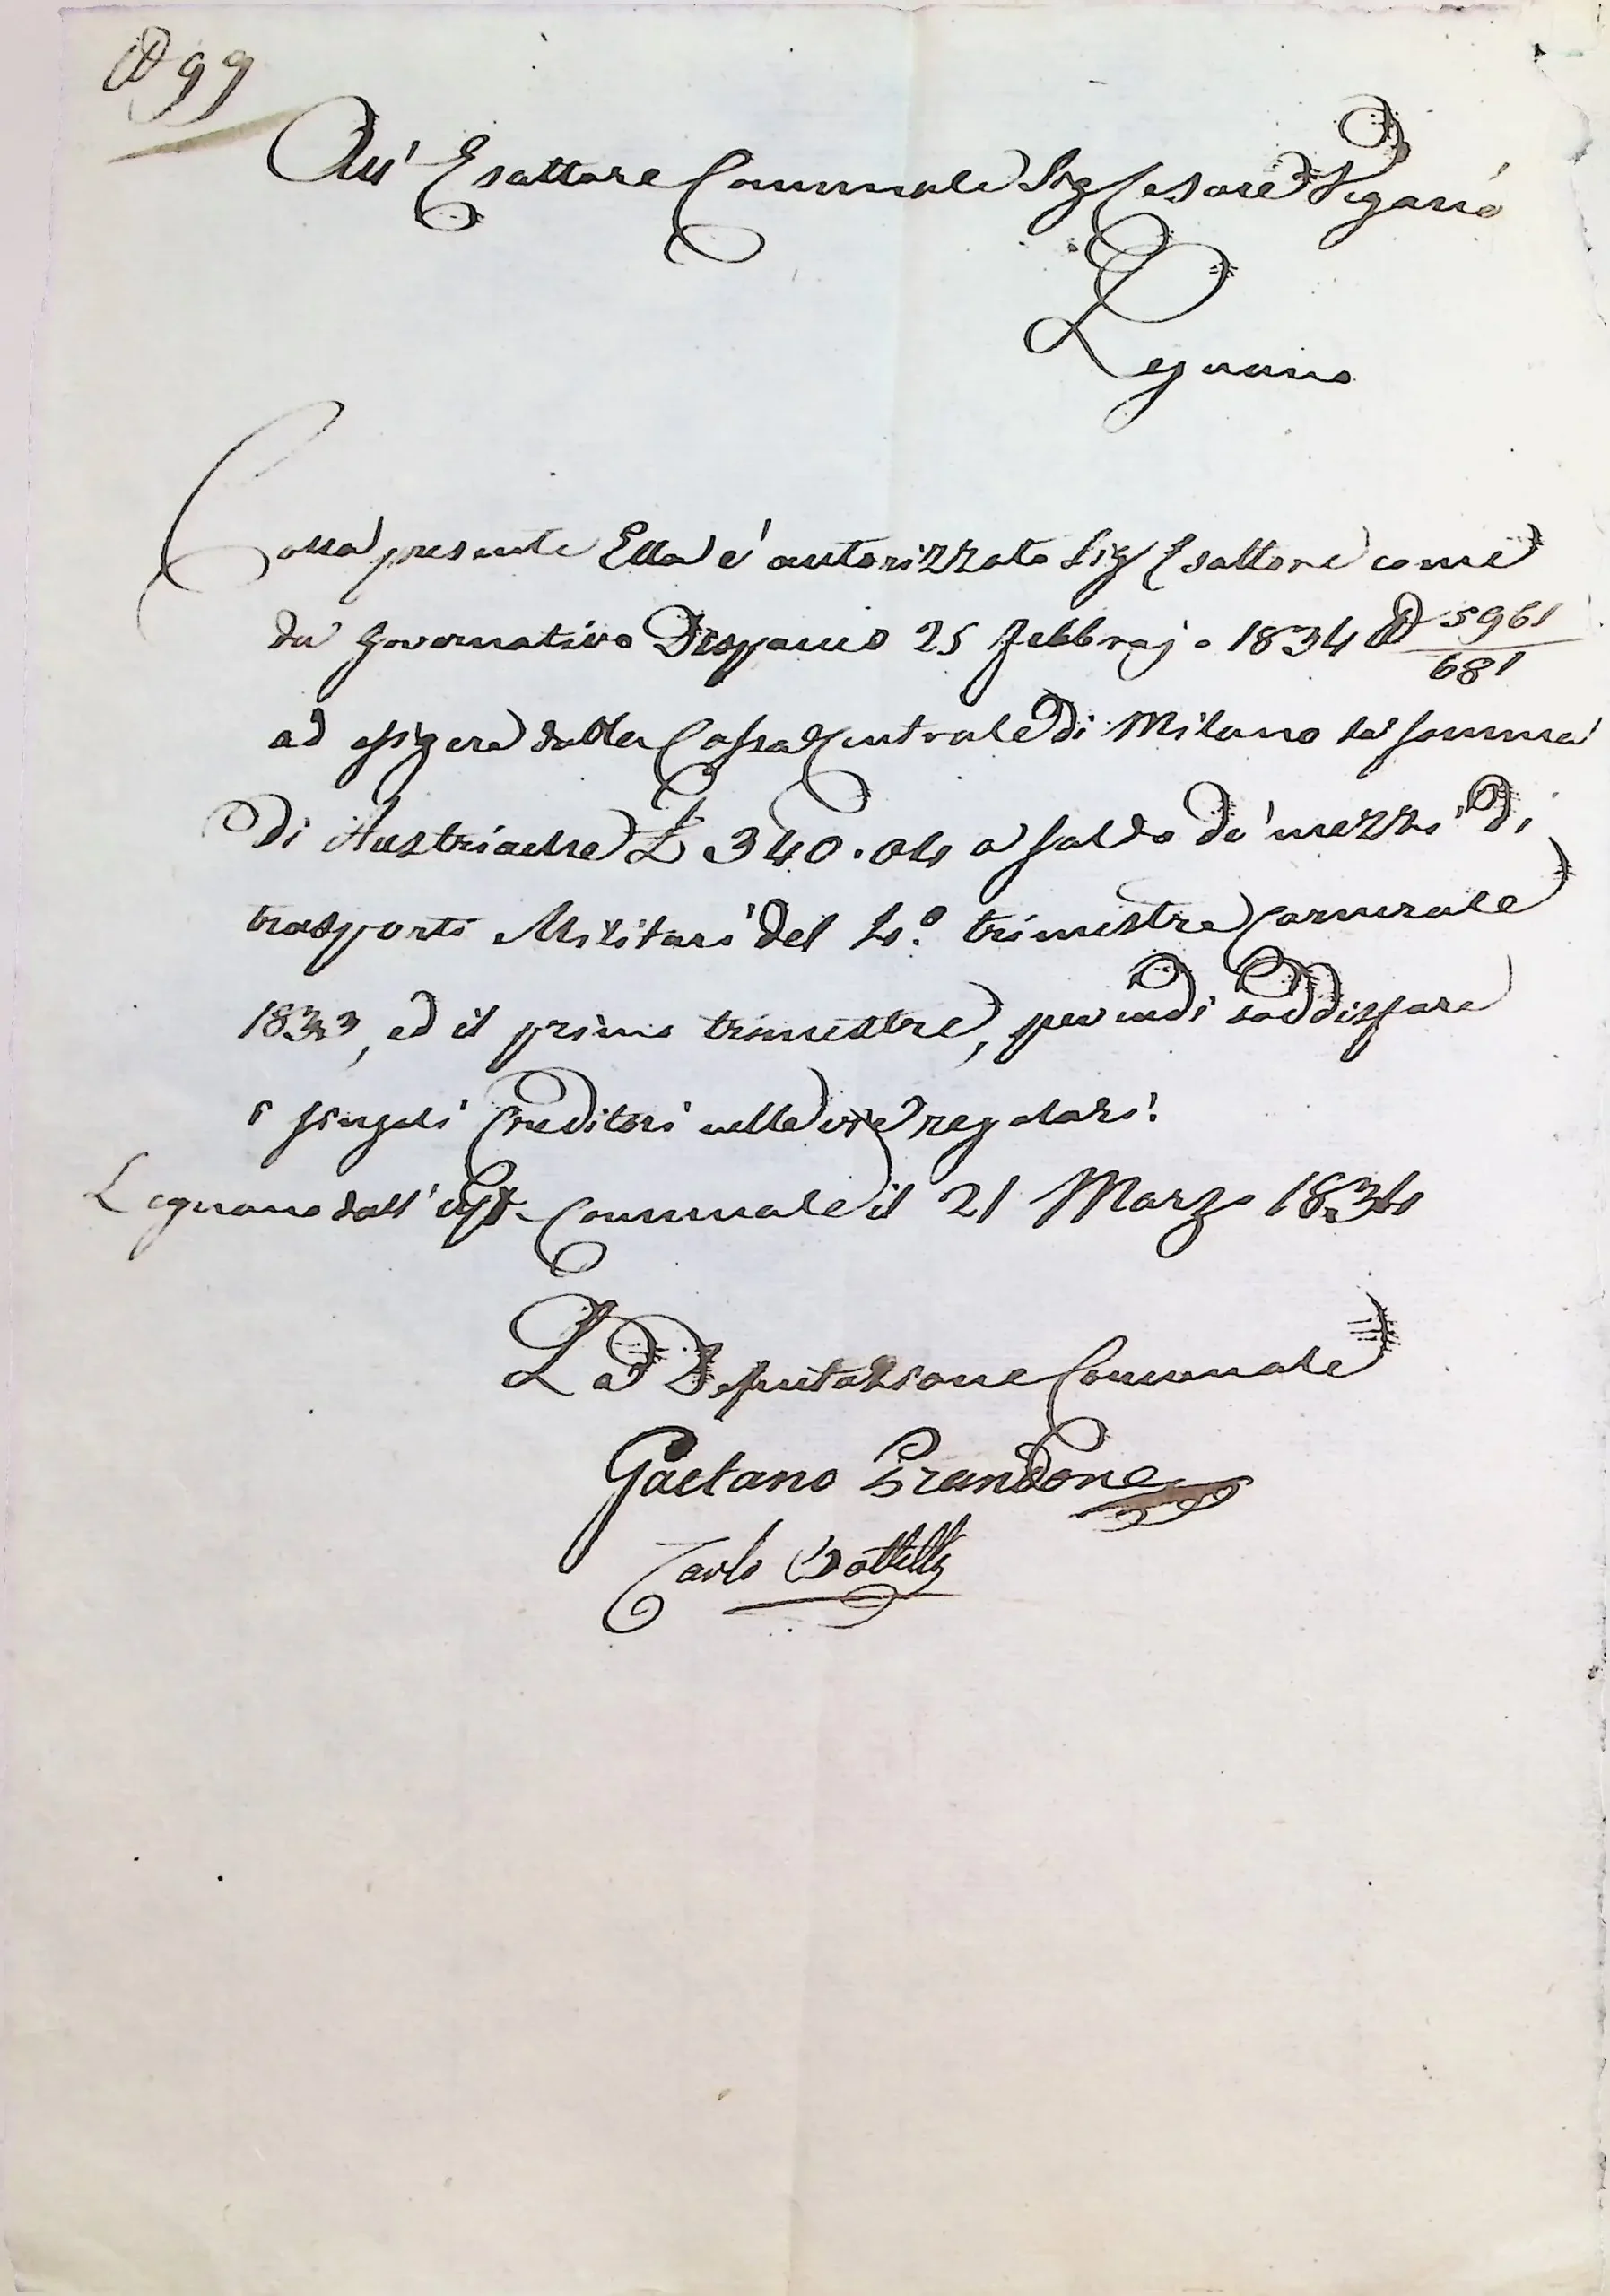 N 99
All' Esattore Comunale Sig Cesare Viganò
Legnano
Colla presente Ella è autorizzato Sig Esattore come
da Governativo Dispaccio 25 Febbrajo 1834 N 5961/681
ad esigere dalla Cassa Centrale di Milano la somma
di Austriache L 340.04 a saldo de' mezzi di
trasporti Militari del 4.º trimestre Camerale
1833, ed il primo trimestre, per indi soddisfare
i singoli Creditori nelle vie regolari.
Legnano dall' Comunale il 21 Marzo 1834
La Deputazione Comunale
Gaetano Brandone
Carlo